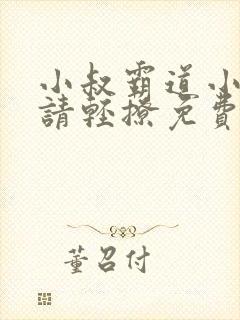 小叔霸道小
請輕撩免費
董召付